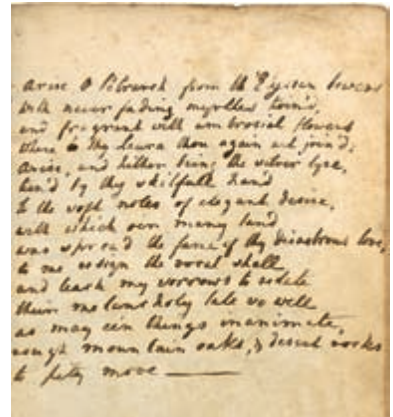 Arise O Petrarch from th' Elysian bowers
with never fading myrtles twin'd,
and fragrant with ambrosial flowers
where to thy Laura thou again art join'd;
Arise, and hither bring the silver lyre,
tun'd by thy skilfull hand
to the soft notes of elegant desire,
with which o'er many land
was spread the fame of thy disastrous love,
to me resign the vocal shell
and teach my sorrows to relate
their melancholy tale so well
as may e'en things inanimate,
rough mountain oaks, & desert rocks
to pity move